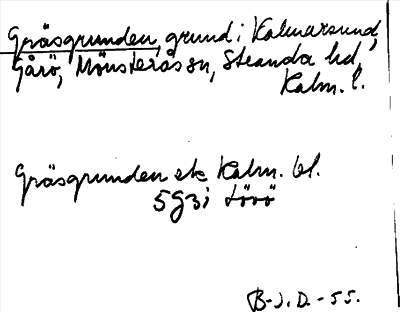 Gräsgrunden, grund i Kalmarsund,
Gårö, Mönsterås sn, Stranda hd,
Kalm. l.
Gräsgrunden ek Kalm. bl.
5G3i Lövö
B-J. D. - 55.